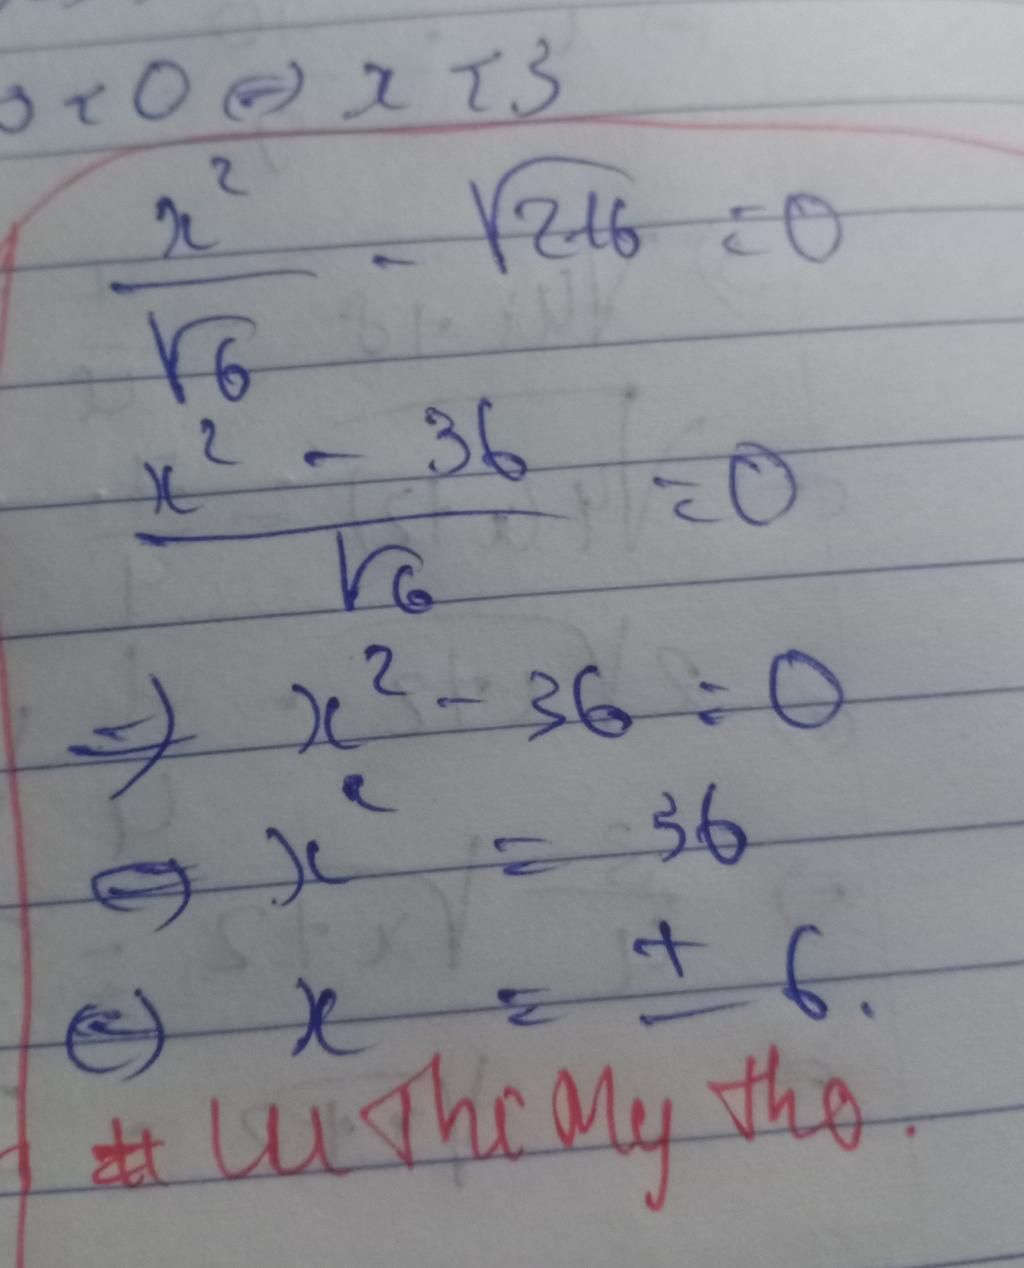 < 0 ⇔ x < 3
x²/√6 - √216 = 0
(x² - 36)/√6 = 0
⇒ x² - 36 = 0
⇔ x² = 36
⇔ x = ± 6.
# Lu Thi My Tho.